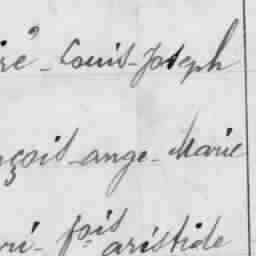 ré - Louis - Joseph
nçois - ange - Marie
ri - f.ois aristide